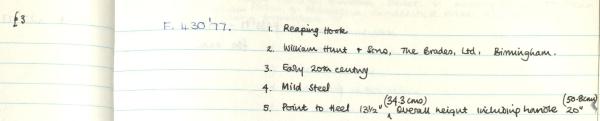 £3
F. 430'77.
1. Reaping Hook
2. William Hunt & Sons, The Brades, Ltd, Birmingham.
3. Early 20th century
4. Mild Steel
(34.3 cms) (50.8cms)
5. Point to Heel 13½" Overall height including handle 20"